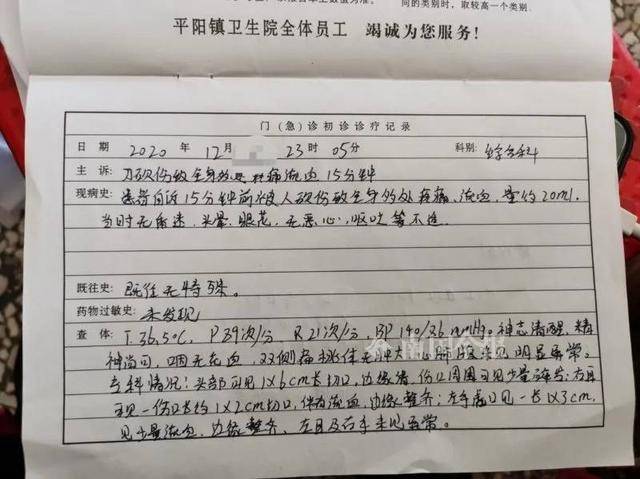 同的类别时，取较高一个类别.
平阳镇卫生院全体员工 竭诚为您服务！
门（急）诊初诊诊疗记录
日期 2020 年 12月 23时 05分 科别: 综合科
主诉: 刀砍伤致全身多处疼痛流血15分钟
现病史: 患者自诉15分钟前被人砍伤致全身多处疼痛、流血，量约20ml.
当时无昏迷，头晕、眼花，无恶心、呕吐等不适.
既往史: 既往无特殊。
药物过敏史: 未发现
查体: T 36.5℃, P 89次/分, R 21次/分, BP 140/ mmHg. 神志清醒，精
神尚可，咽无充血，双侧扁桃体无肿大，心肺腹未见明显异常。
专科情况：头部可见1×6cm长切口，边缘清，伤口周围可见少量 ；右耳
可见一伤口长约1×2cm切口，伴有流血，边缘整齐；左手 可见一长1×3cm,
见少量流血、边缘整齐，左耳及右手未见异常。